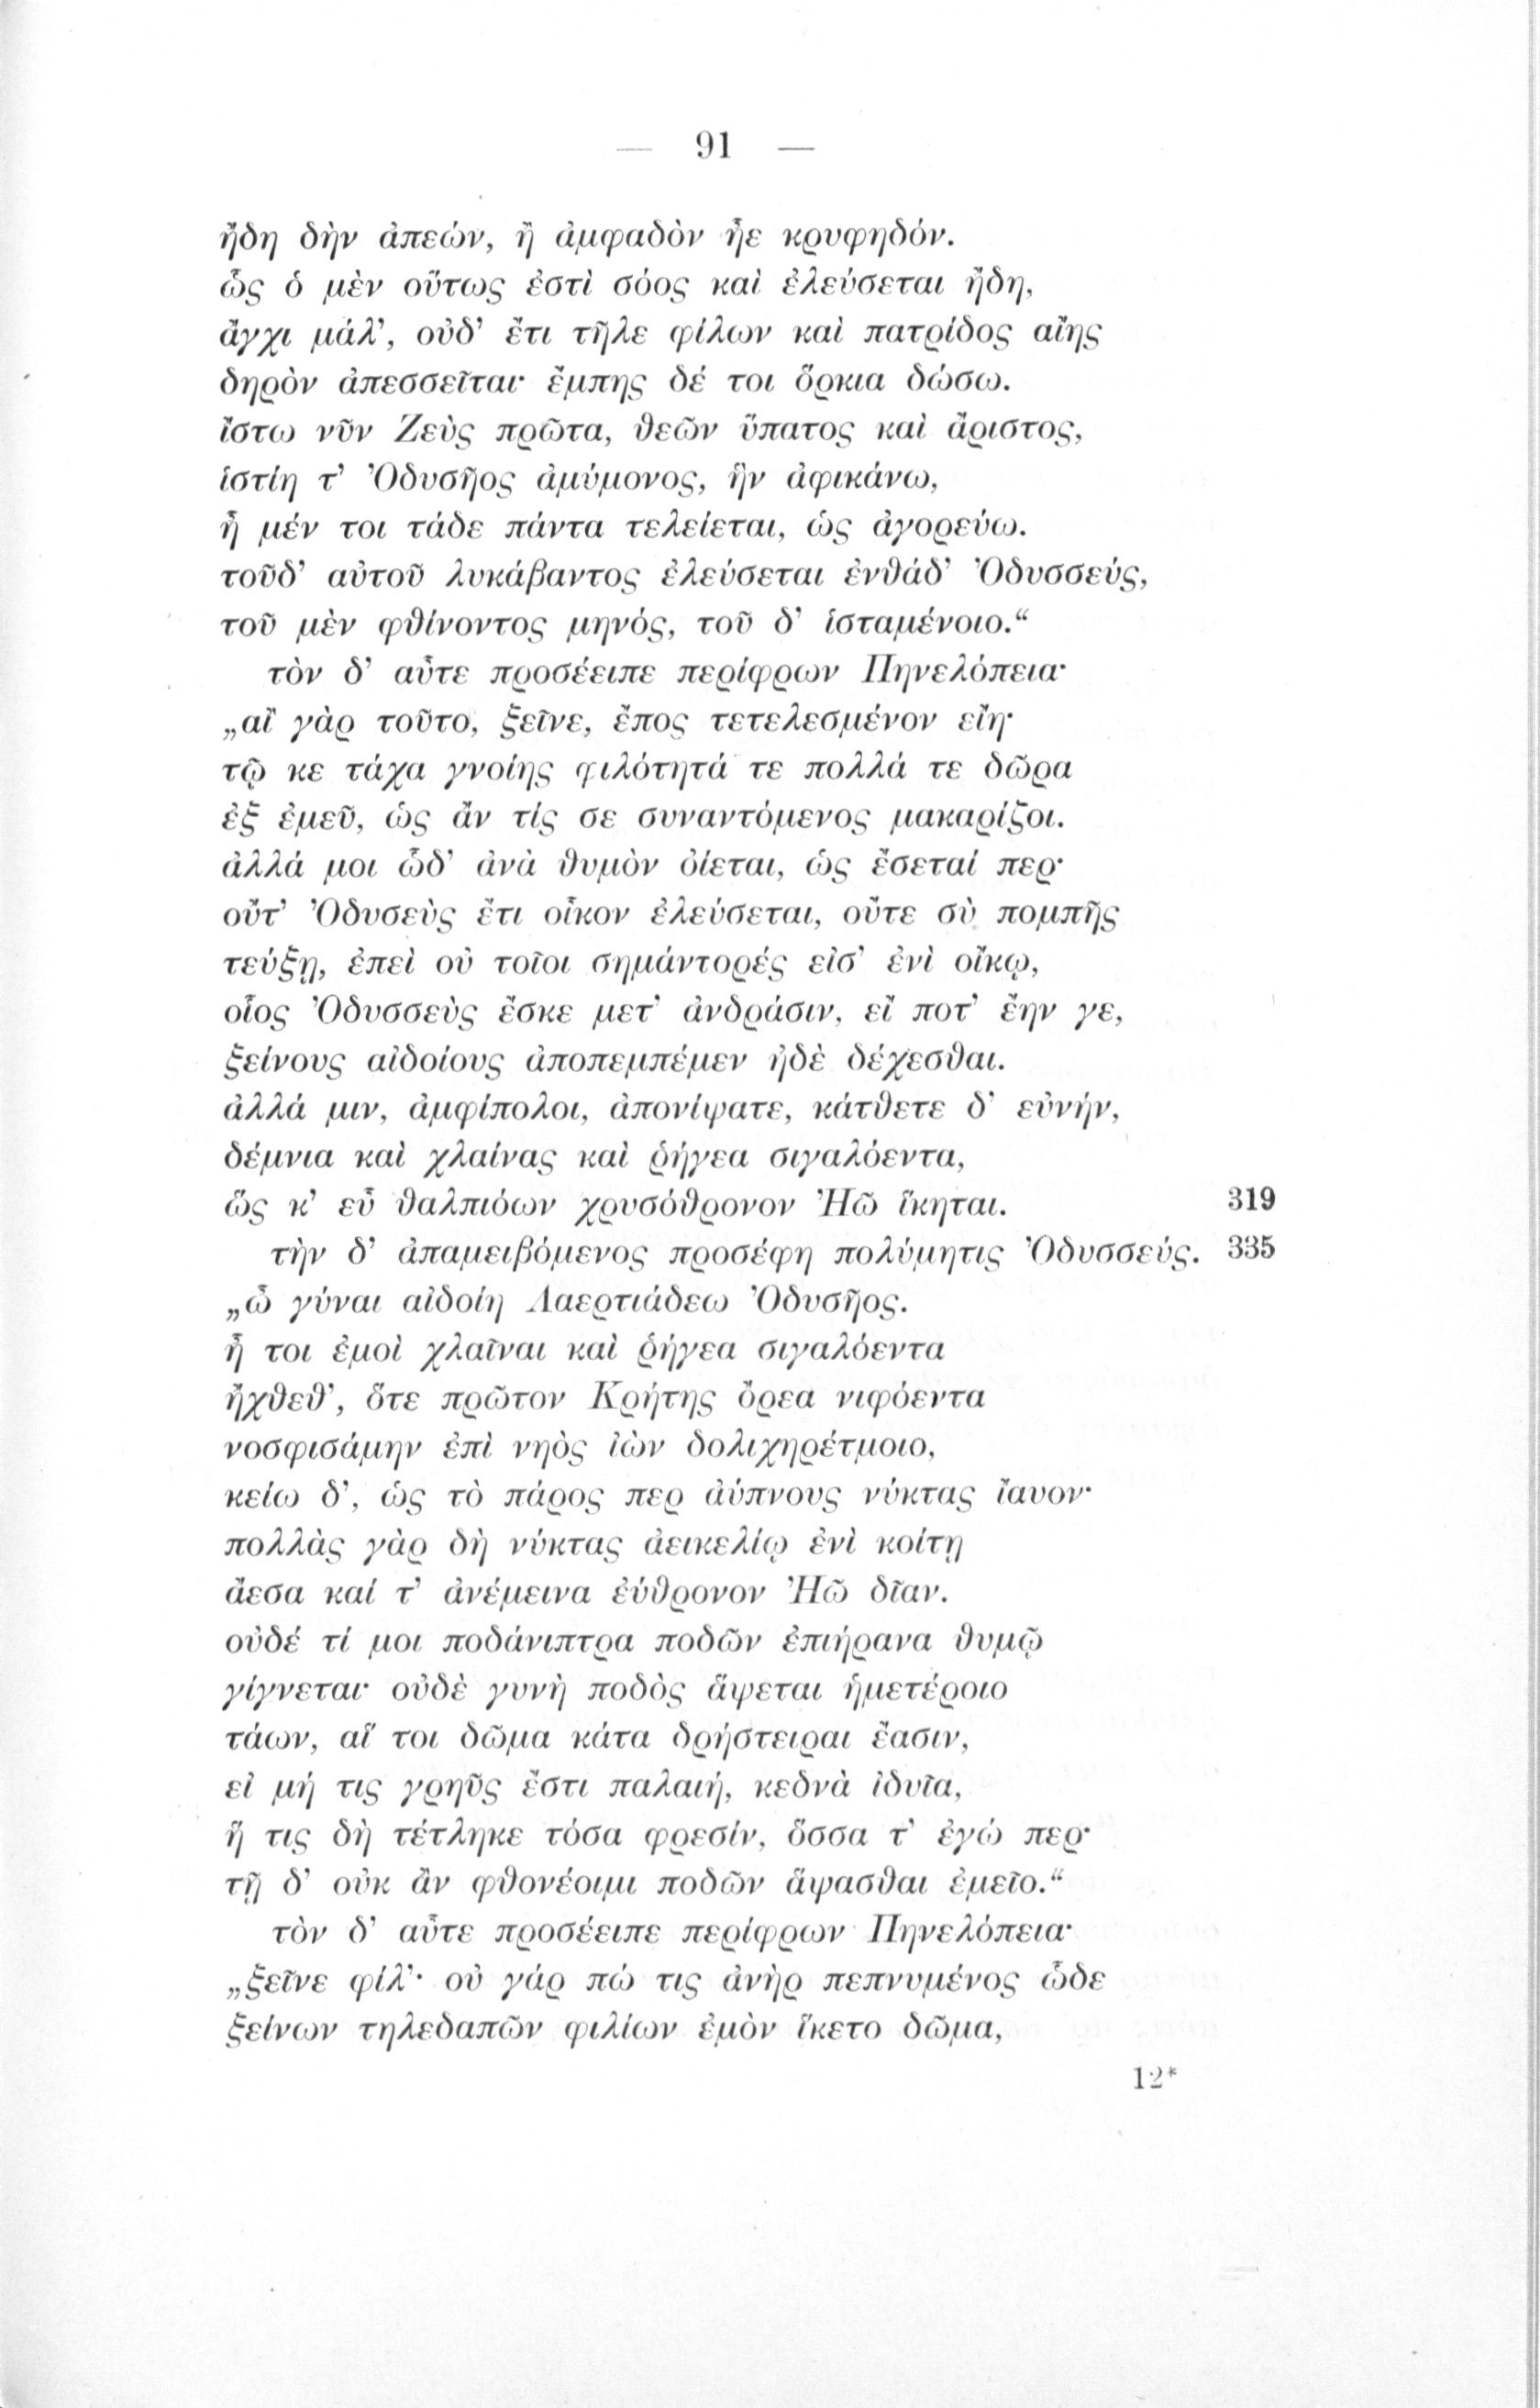 — 91 —
ἤδη δὴν ἀπεών, ἢ ἀμφαδὸν ἦε κρυφηδόν.
ὣς ὁ μὲν οὕτως ἐστὶ σόος καὶ ἐλεύσεται ἤδη,
ἄγχι μάλ', οὐδ' ἔτι τῆλε φίλων καὶ πατρίδος αἴης
δηρὸν ἀπεσσεῖται· ἔμπης δέ τοι ὅρκια δώσω.
ἴστω νῦν Ζεὺς πρῶτα, θεῶν ὕπατος καὶ ἄριστος,
ἱστίη τ' Ὀδυσῆος ἀμύμονος, ἣν ἀφικάνω,
ἦ μέν τοι τάδε πάντα τελείεται, ὡς ἀγορεύω.
τοῦδ' αὐτοῦ λυκάβαντος ἐλεύσεται ἐνθάδ' Ὀδυσσεύς,
τοῦ μὲν φθίνοντος μηνός, τοῦ δ' ἱσταμένοιο.“
τὸν δ' αὖτε προσέειπε περίφρων Πηνελόπεια·
„αἲ γὰρ τοῦτο, ξεῖνε, ἔπος τετελεσμένον εἴη·
τῷ κε τάχα γνοίης φιλότητά τε πολλά τε δῶρα
ἐξ ἐμεῦ, ὡς ἄν τίς σε συναντόμενος μακαρίζοι.
ἀλλά μοι ὧδ' ἀνὰ θυμὸν ὀίεται, ὡς ἔσεταί περ·
οὔτ' Ὀδυσεὺς ἔτι οἶκον ἐλεύσεται, οὔτε σὺ πομπῆς
τεύξῃ, ἐπεὶ οὐ τοῖοι σημάντορές εἰσ' ἐνὶ οἴκῳ,
οἷος Ὀδυσσεὺς ἔσκε μετ' ἀνδράσιν, εἴ ποτ' ἔην γε,
ξείνους αἰδοίους ἀποπεμπέμεν ἠδὲ δέχεσθαι.
ἀλλά μιν, ἀμφίπολοι, ἀπονίψατε, κάτθετε δ' εὐνήν,
δέμνια καὶ χλαίνας καὶ ῥήγεα σιγαλόεντα,
ὥς κ' εὖ θαλπιόων χρυσόθρονον Ἠῶ ἵκηται. 319
τὴν δ' ἀπαμειβόμενος προσέφη πολύμητις Ὀδυσσεύς. 335
„ὦ γύναι αἰδοίη Λαερτιάδεω Ὀδυσῆος.
ἦ τοι ἐμοὶ χλαῖναι καὶ ῥήγεα σιγαλόεντα
ἤχθεθ', ὅτε πρῶτον Κρήτης ὄρεα νιφόεντα
νοσφισάμην ἐπὶ νηὸς ἰὼν δολιχηρέτμοιο,
κείω δ', ὡς τὸ πάρος περ ἀύπνους νύκτας ἴαυον·
πολλὰς γὰρ δὴ νύκτας ἀεικελίῳ ἐνὶ κοίτῃ
ἄεσα καί τ' ἀνέμεινα ἐύθρονον Ἠῶ δῖαν.
οὐδέ τί μοι ποδάνιπτρα ποδῶν ἐπιήρανα θυμῷ
γίγνεται· οὐδὲ γυνὴ ποδὸς ἅψεται ἡμετέροιο
τάων, αἵ τοι δῶμα κάτα δρήστειραι ἔασιν,
εἰ μή τις γρηῦς ἔστι παλαιή, κεδνὰ ἰδυῖα,
ἥ τις δὴ τέτληκε τόσα φρεσίν, ὅσσα τ' ἐγώ περ·
τῇ δ' οὐκ ἂν φθονέοιμι ποδῶν ἅψασθαι ἐμεῖο.“
τὸν δ' αὖτε προσέειπε περίφρων Πηνελόπεια·
„ξεῖνε φίλ'· οὐ γάρ πώ τις ἀνὴρ πεπνυμένος ὧδε
ξείνων τηλεδαπῶν φιλίων ἐμὸν ἵκετο δῶμα,
12*